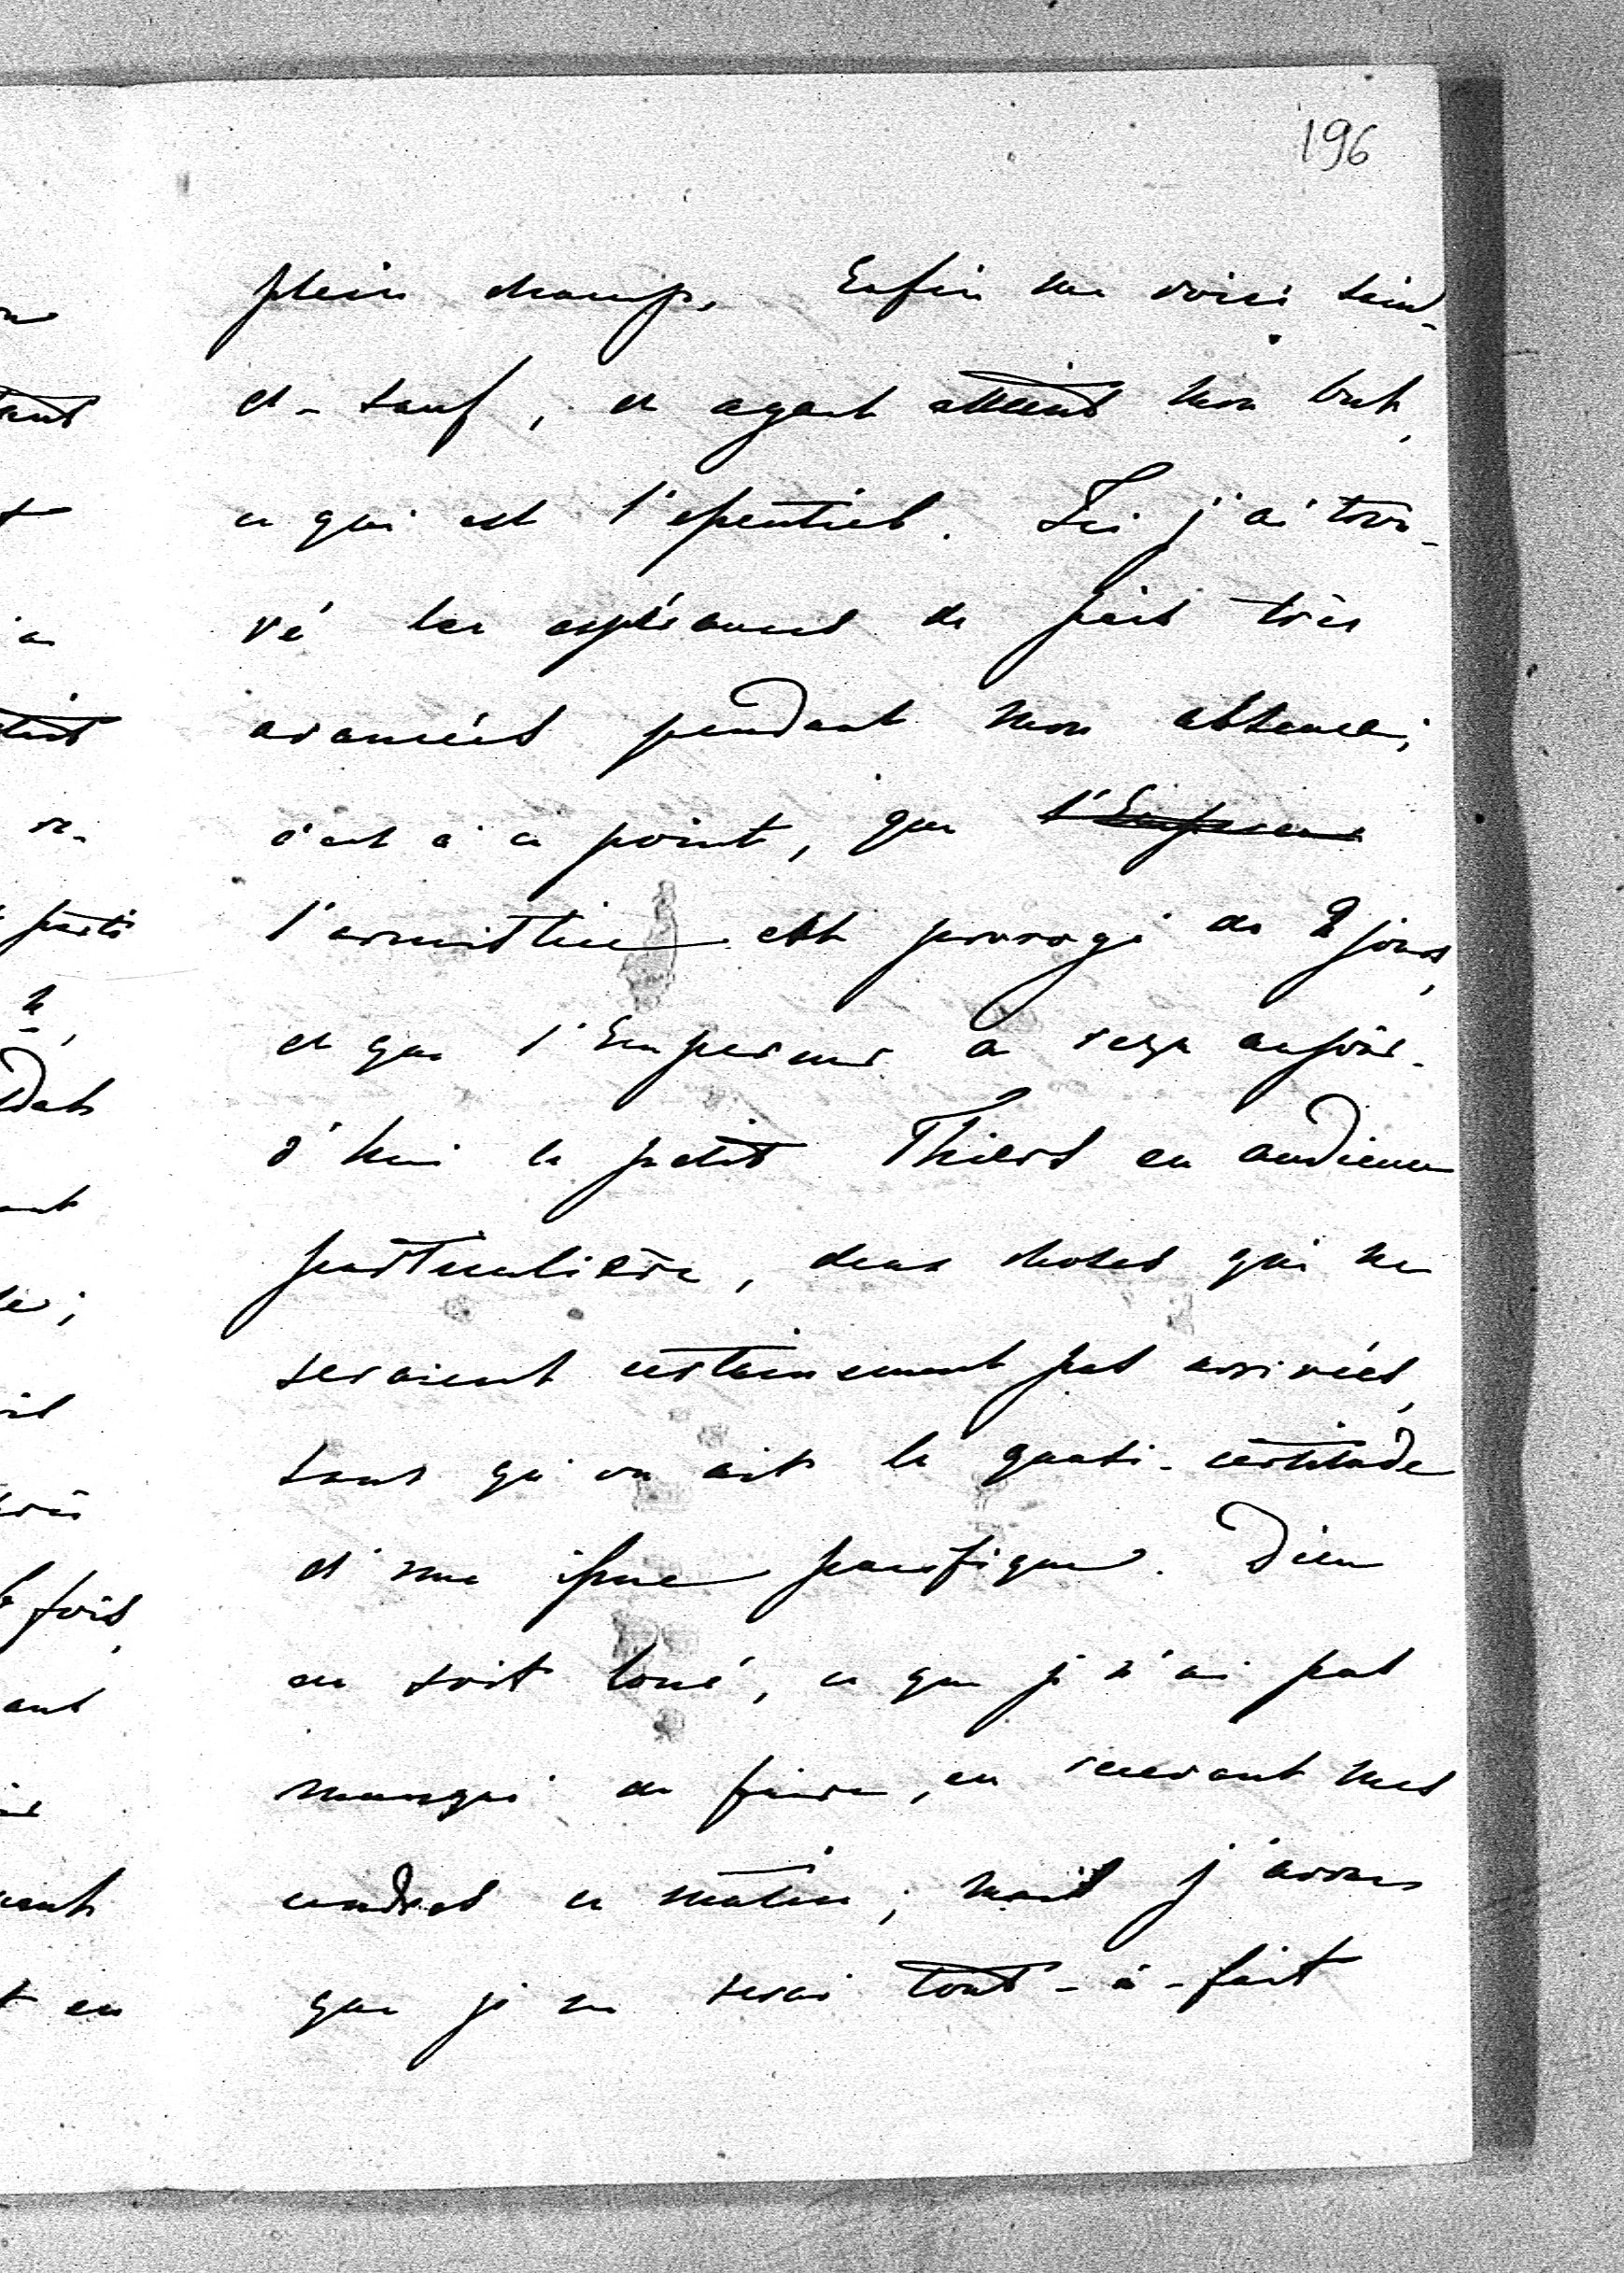 196
plein champ. Enfin me voici sain-
et-sauf, et ayant atteint mon but,
ce qui est l'essentiel. Ici j'ai trou-
vé les espérances de paix très
avancées pendant mon absence;
c'est à ce point, que l'Empereur
l'armistice est prorogé de 2 jours,
et que l'Empereur a reçu aujour-
d'hui le petit Thiers en audience
particulière, deux choses qui ne
seraient certainement pas arrivées,
sans qu'on ait la quasi-certitude
d'une issue pacifique. Dieu
en soit loué, ce que je n'ai pas
manqué de faire, en recevant mes
cendres ce matin; mais j'avoue
que je ne serai tout-à-fait